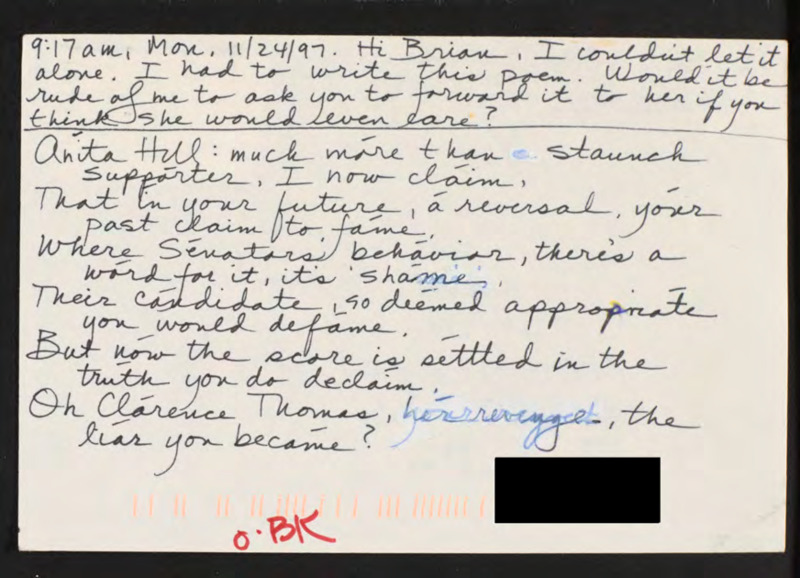 9:17am, Mon. 11/24/97. Hi Brian, I couldn't let it
alone. I had to write this poem. Would it be
rude of me to ask you to forward it to her if you
think she would even care?
Anita Hill: much more than a staunch
supporter, I now claim,
That in your future, a reversal, your
past claim to fame.
Where Senators' behavior, there's a
word for it, it's 'shame'.
Their candidate, so deemed appropriate
you would defame.
But now the score is settled in the
truth you do declaim.
Oh Clarence Thomas, the
liar you became?
O.BK